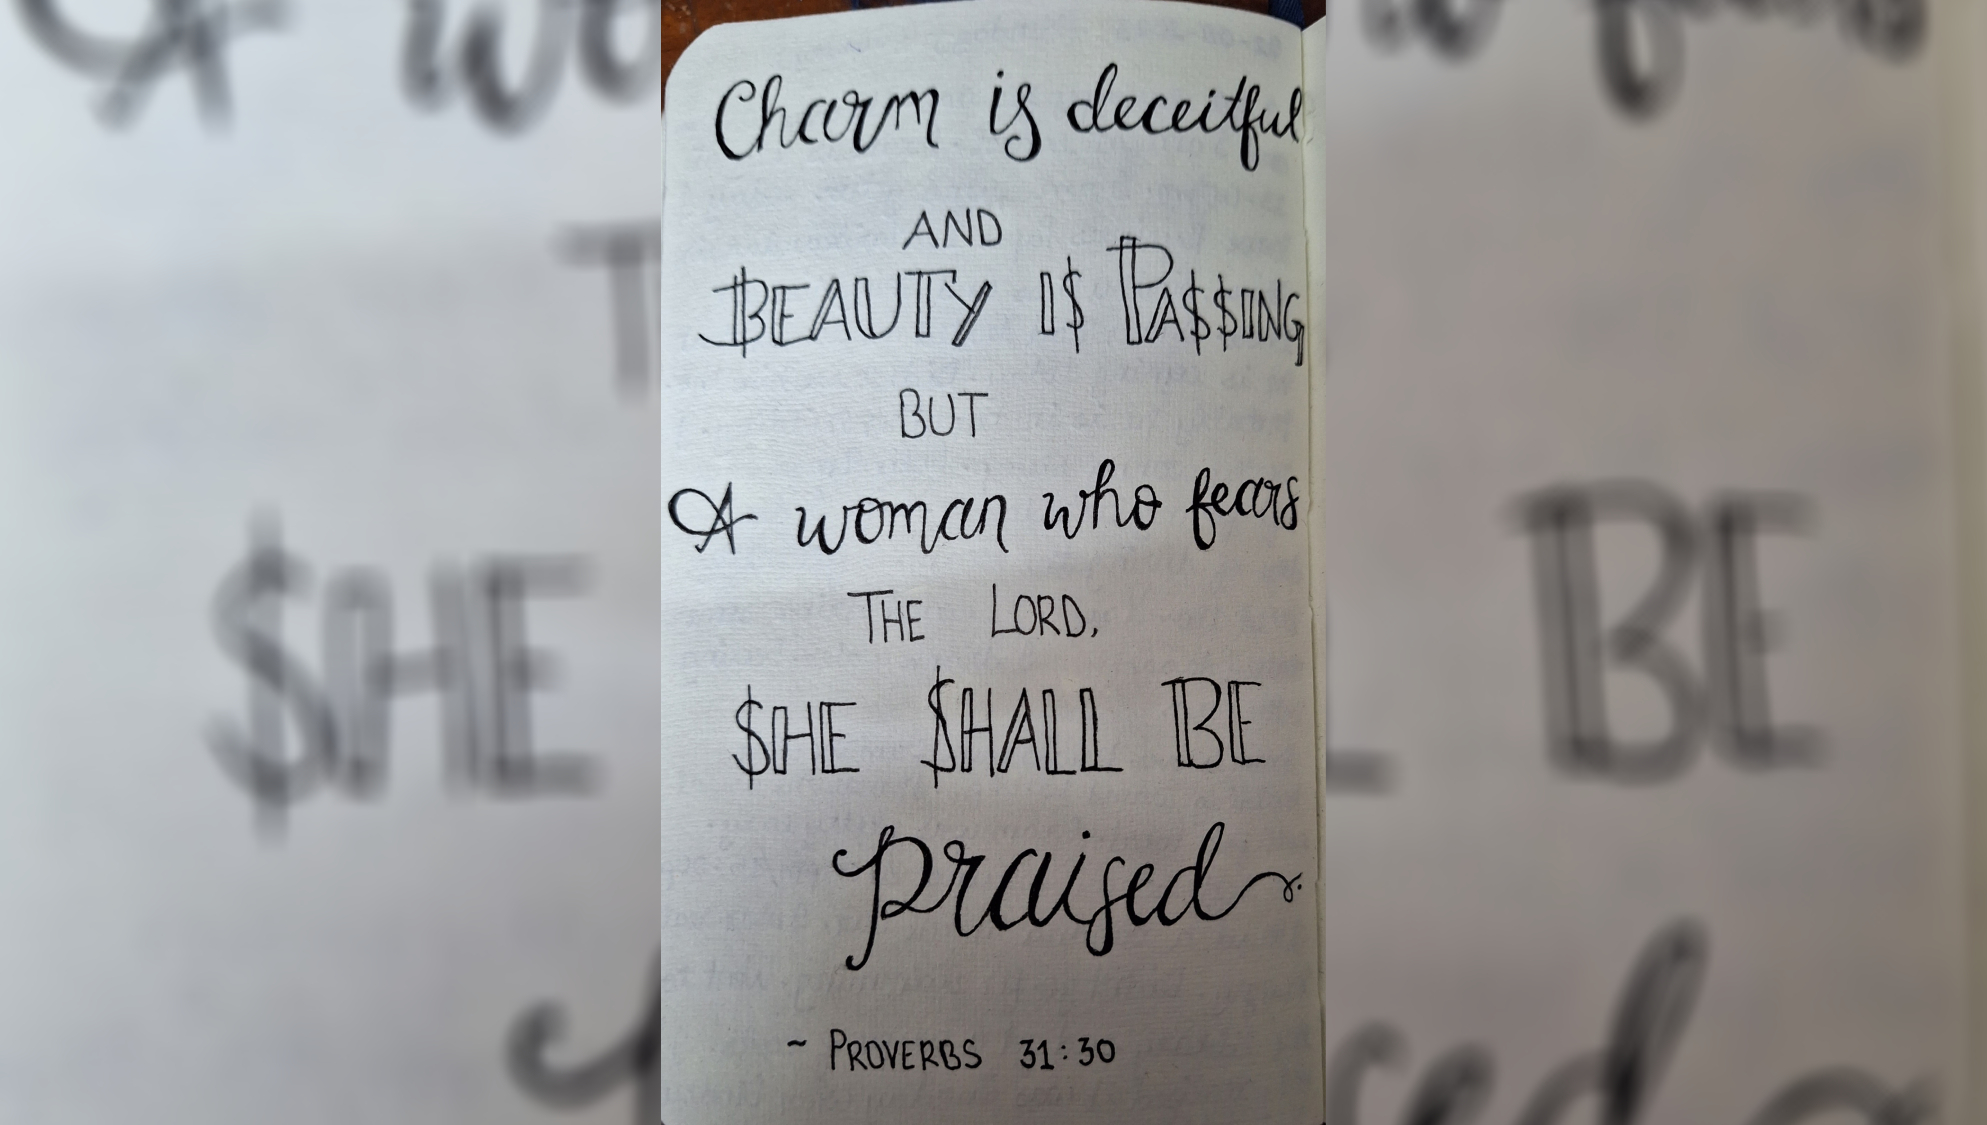 Charm is deceitful
AND
BEAUTY I$ PA$$ING,
BUT
A woman who fears
THE LORD,
$HE $HALL BE
praised.
~ PROVERBS 31:30